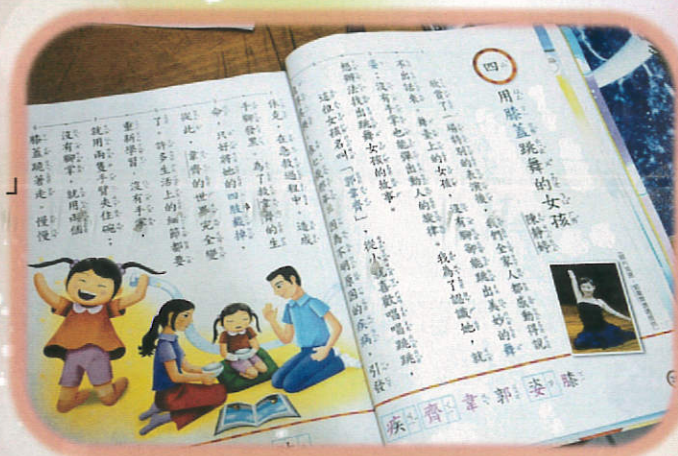 四
用膝蓋跳舞的女孩
陳靜婷
欣賞了一場特別的表演後,我們全家人都感動得說
不出話來。舞臺上的女孩,沒有腳卻能跳出美妙的舞
姿;沒有手掌也能彈出動人的旋律。我為了認識她,就
想辦法找出跳舞女孩的故事。
這位女孩名叫「郭韋齊」,從小就喜歡唱唱跳跳,
因為不明原因的疾病,引發
休克,在急救過程中,造成
手腳發黑。為了救韋齊的生
命,只好將她的四肢截掉。
從此,韋齊的世界完全變
了,許多生活上的細節都要
重新學習。沒有手掌,
就用兩隻手臂夾住碗;
沒有腳掌,就用兩個
膝蓋跪著走。慢慢
膝
姿
郭
韋
齊
疾